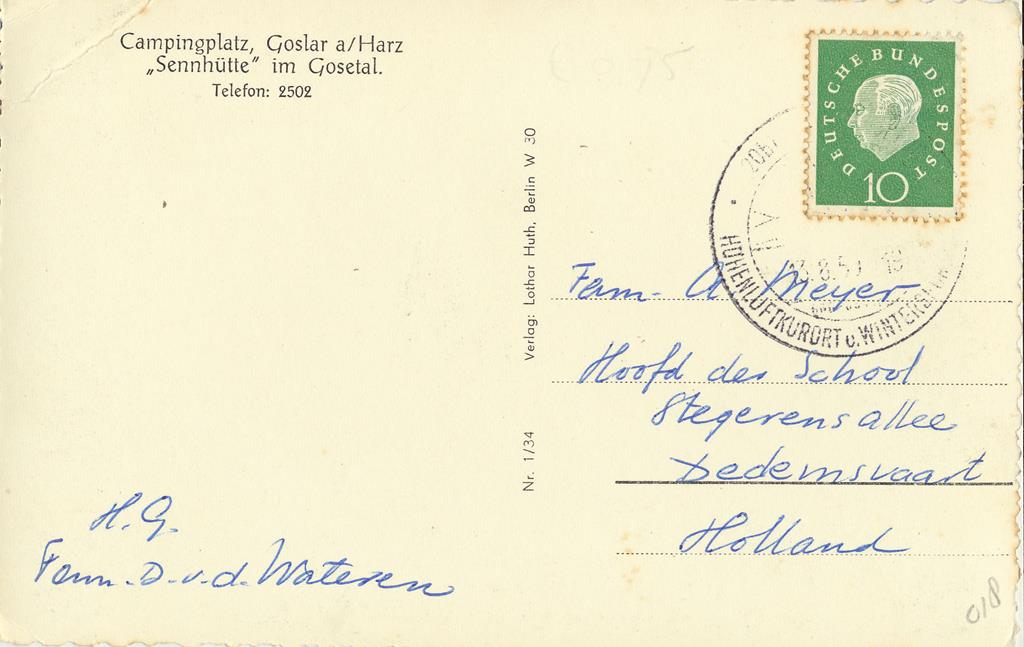 Campingplatz, Goslar a/Harz
„Sennhütte" im Gosetal.
Telefon: 2502
H. G.
Fam. D. v. d. Wateren
Nr. 1/34 Verlag: Lothar Huth, Berlin W 30
DEUTSCHE BUNDESPOST
10
HÖHENLUFTKURORT u. WINTERS
.8.59
Fam. A Meyer
Hoofd der School
Stegerensallee
Dedemsvaart
Holland
018